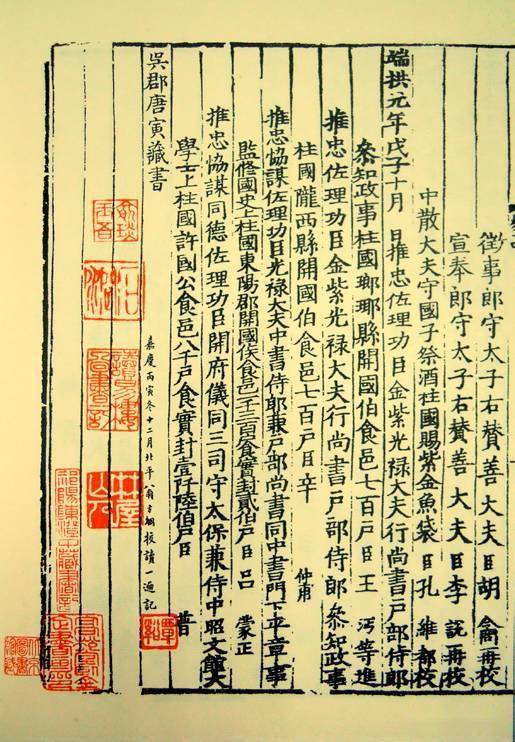 徵事郎守太子右贊善大夫臣胡令再校
宣奉郎守太子右贊善大夫臣李說再校
中散大夫守國子祭酒柱國賜紫金魚袋臣孔維都校
端拱元年戊子十月日推忠佐理功臣金紫光祿大夫行尚書戶部侍郎
叅知政事柱國瑯琊縣開國伯食邑七百戶臣王沔等進
推忠佐理功臣金紫光祿大夫行尚書戶部侍郎叅知政事
柱國隴西縣開國伯食邑七百戶臣辛仲甫
推忠協謀佐理功臣光祿大夫中書侍郎兼戶部尚書同中書門下平章事
監修國史上柱國東陽郡開國侯食邑一千三百戶食實封貳伯戶臣呂蒙正
推忠協謀同德佐理功臣開府儀同三司守太保兼侍中昭文館大
學士上柱國許國公食邑八千戶食實封壹阡陸伯戶臣普
嘉慶丙寅冬十二月北平翁方綱校讀一過記
吳郡唐寅藏書
覃谿
祁陽陳澄中藏書記